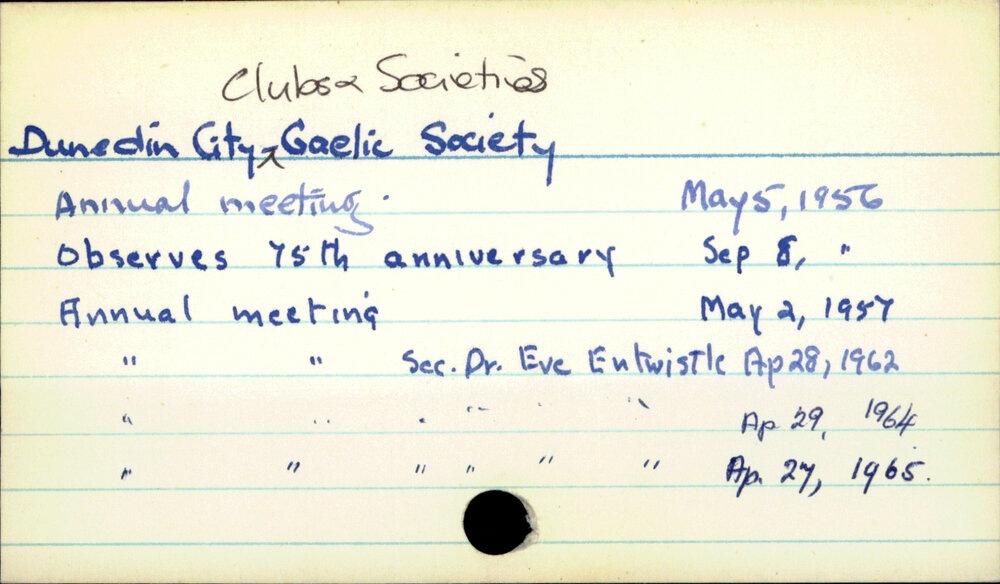 Clubs & Societies
Dunedin City ^ Gaelic Society
Annual meeting. May 5, 1956
Observes 75th anniversary Sep 8, "
Annual meeting May 2, 1957
" " Sec. Dr. Eve Entwistle Ap 28, 1962
" " " " " " Ap 29, 1964
" " " " " " Ap. 27, 1965.